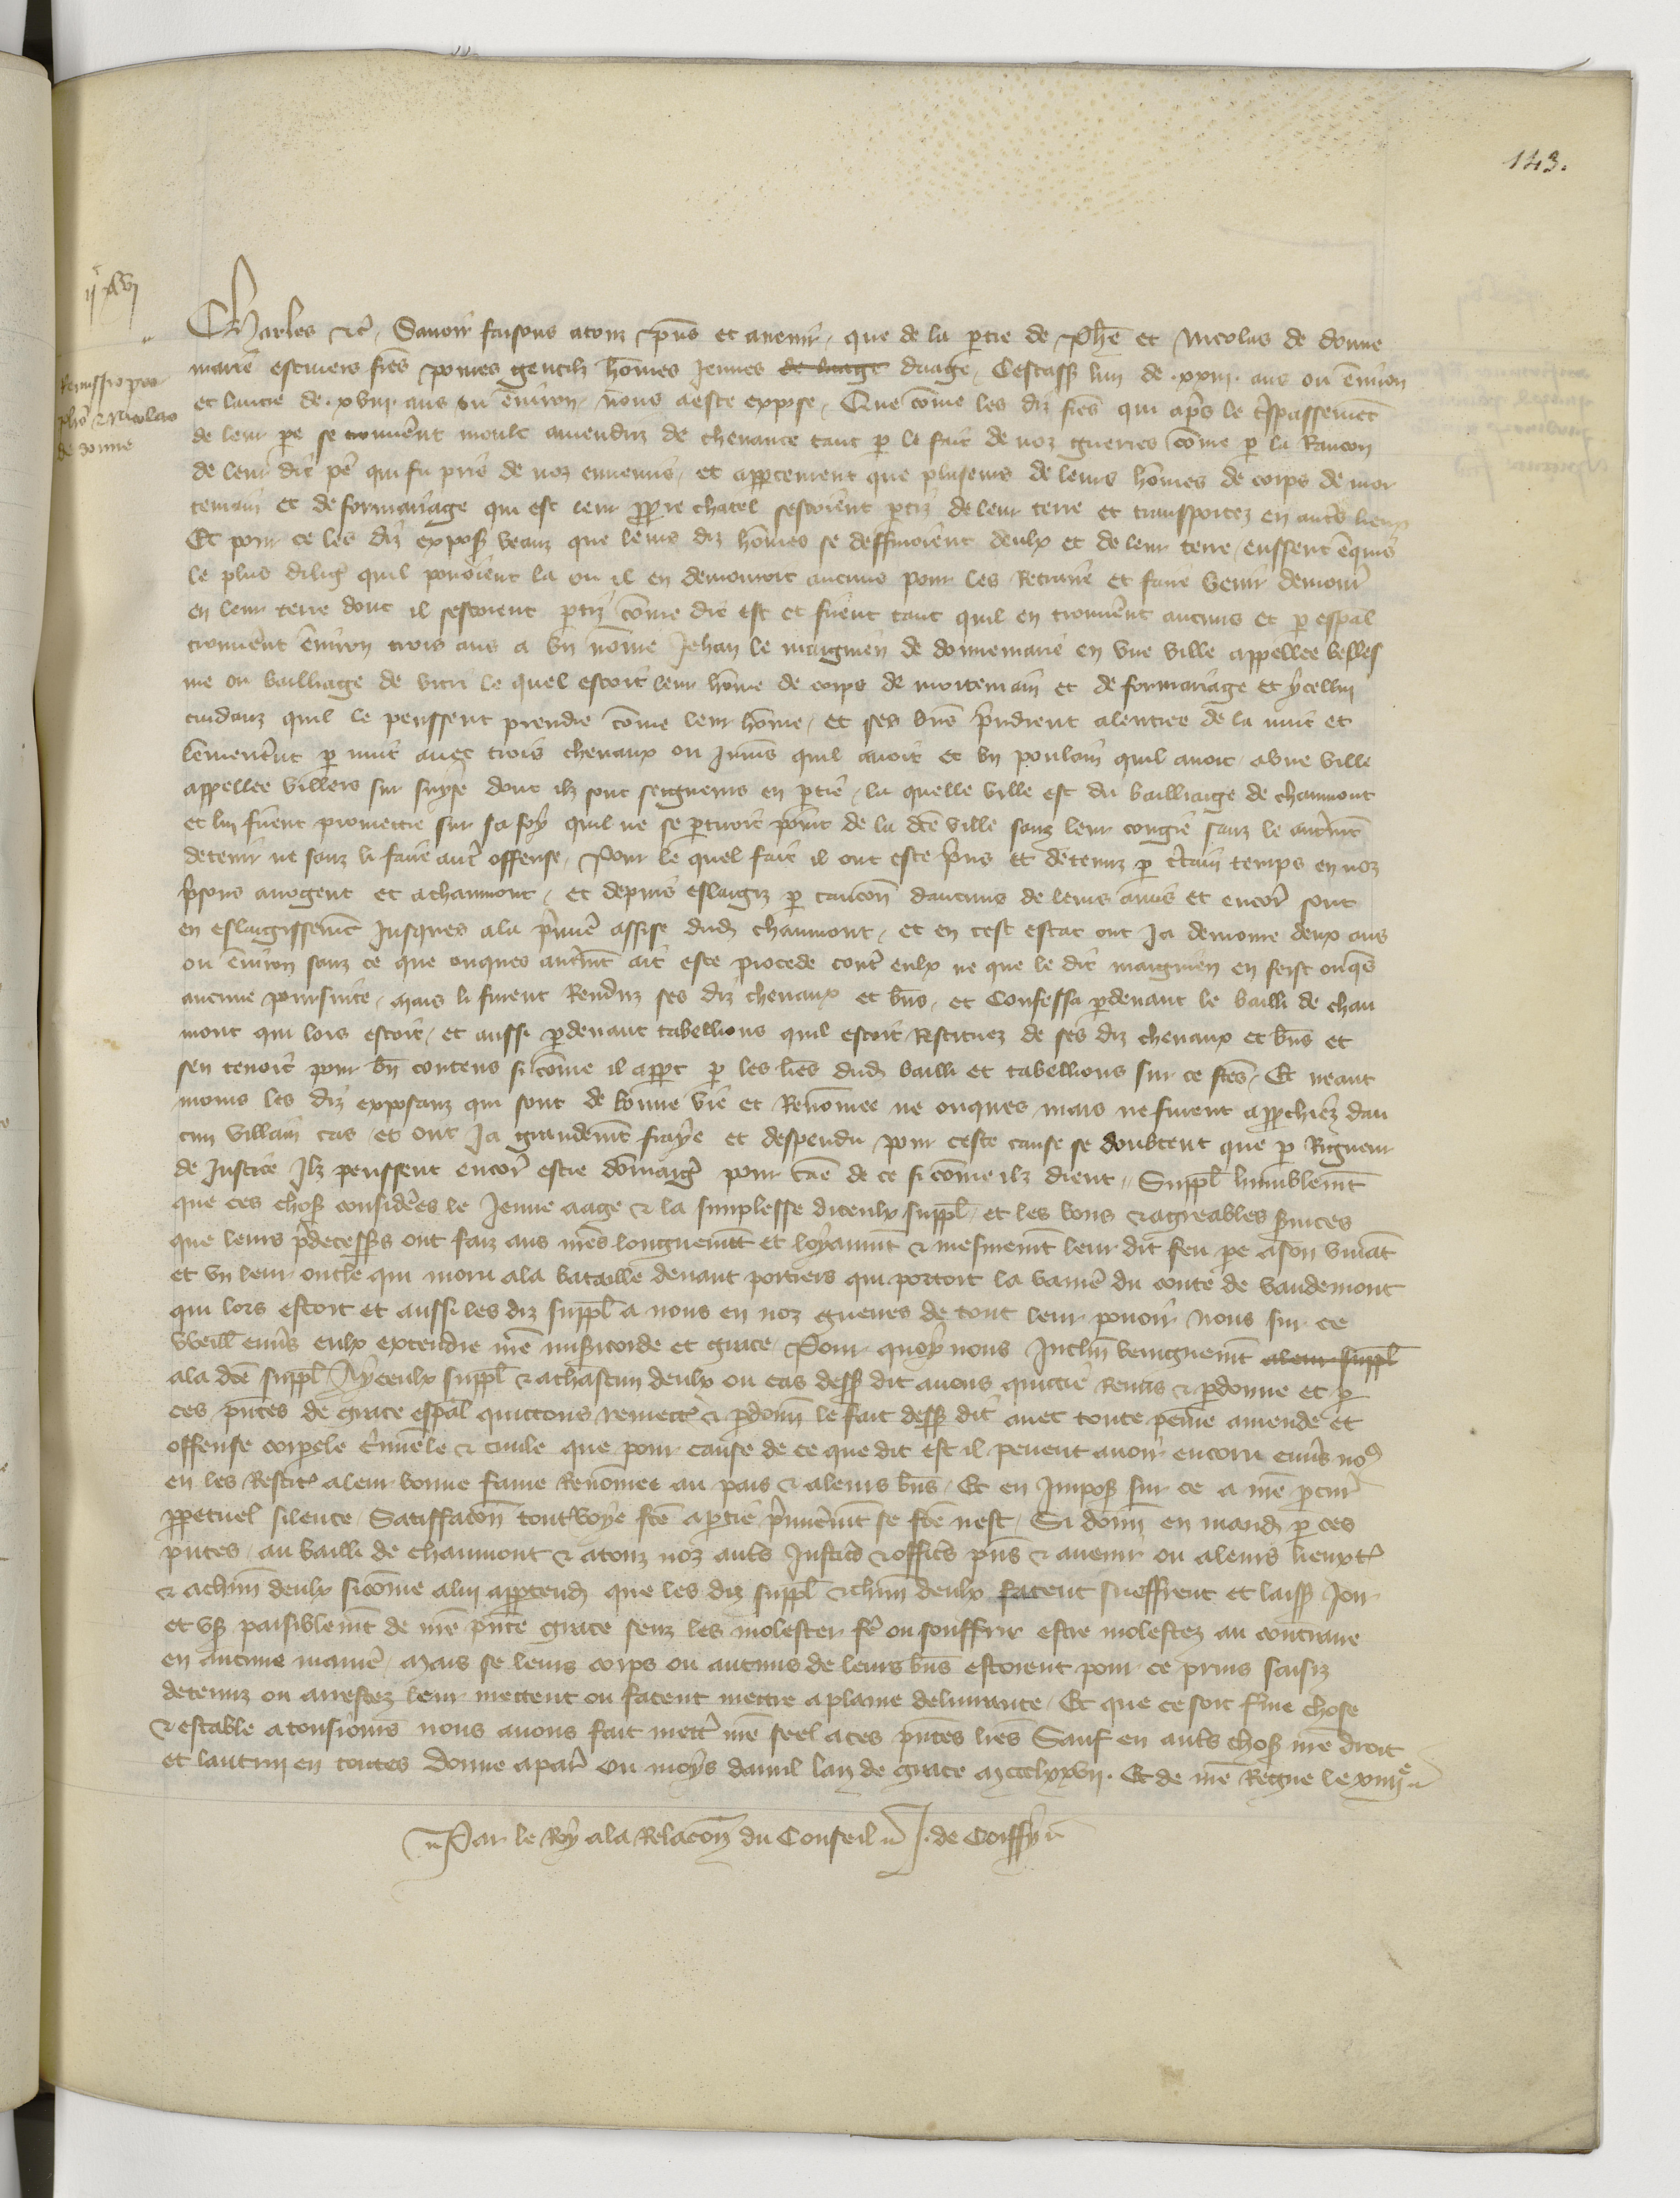 143.
Remissio pro
Phe & Nicolao
de donne
Charles &c. Savoir faisons a touz pns et avenir, que de la ptie de Phe et Nicolas de donne
marie escuiers fres povres gentilz homes jeunes de laage daage, Cestass lun de .xxiii. ans ou environ
et lautre de .xviii. ans ou environ, nous a este expose, Que come les diz fres qui aprs le trspassement
de leur pe se trouverent moult amendriz de chevance tant p le fait de noz guerres come p la Rancon
de leur dit pe qui fu pris de noz ennemis, et appcement que pluseurs de leurs homes de corps de mor
temain et de formariage qui est leur ppre chatel sestoient ptiz de leur terre et transportez en autrs lieux
Et pour ce les diz expos veanz que leurs diz homes se deffuioient deulx et de leur terre, eussent enquis
le plus dilig quil povoient la ou il en demouroit aucuns pour les Retraire et faire venir demourer
en leur terre dont il sestoient ptiz come dit est et furent tant quil en trouverent aucuns et p espal
trouverent environ trois ans a un nome Jehan le maignien de donnemarie en une ville appellee belles
me ou bailliage de vitri le quel estoit leur home de corps de mortemain et de formariage et ycellui
cuidanz quil le peussent prendre come leur home, et ses biens prindrent a lentree de la nuit et
lemmenerent p nuit avec trois chevaux ou jumens quil avoit et un poulain quil avoit, a une ville
appellee Villers sur suyse dont ilz sont seigneurs en ptie, la quelle ville est du bailliaige de chaumont
et lui firent promettre sur sa foy quil ne se ptiroit point de la dce ville sanz leur congie sanz le autremt
detenir ne sanz li faire autr offense, Pour le quel fait il ont este prins et detenuz p certain temps en noz
prisons a nogent et a chaumont, et depuis eslargiz p caucon daucuns de leurs amis et encor sont
en eslargissement jusques a la premiere assise dud chaumont, et en cest estat ont ja demoure deux ans
ou environ sanz ce que onques autremt ait este procede contr eulx ne que le dit maignien en feist onqs
aucune poursuite, mais li furent Renduz ses diz chevaux et bns, et Confessa pdevant le bailli de chau
mont qui lors estoit, et aussi pdevant tabellions quil estoit Restituez de ses diz chevaux et bns et
sen tenoit pour bn contens si come il appt p les lres dud bailli et tabellions sur ce fces, Et neant
moins les diz exposanz qui sont de bonne vie et Renomee ne onques mais ne furent approchiez dau
cun villain cas, et ont ja grandemt fraye et despendu pour ceste cause se doubtent que p Rigueur
de justice Ilz peussent encor estre domaigr pour cae de ce si come ilz dient, Suppl humblemt
que ces chos considerees le jeune aage & la simplesse diceulx suppl, et les bons & agreables services
que leurs predecesss ont faiz aus nres longuemt et loyaumt & mesmemt leur dit feu pe a son vivat
et un leur oncle qui moru a la bataille devant poitiers qui portoit la baniere du conte de vaudemont
qui lors estoit et aussi les diz suppl a nous en noz guerres de tout leur povoir Nous sur ce
vueill envrs eulx extendre nre misricorde et grace, Pour quoy nous Inclin benignemt a leur suppl
a la dce suppl A yceulx suppl & a chascun deulx ou cas dess dit avons quittie Remis & pdonne et p
ces pntes de grace espal quittons remett & pdonn le fait dess dit avec toute peine amende et
offense corpele criminele & civile que pour cause de ce que dit est il pevent avoir encoru envrs nos
en les Restit a leur bonne fame Renomee au pais & a leurs bns, Et en Impos sur ce a nre pcur
ppetuel silence, Satiffacon toutevoye fce a ptie premieremt se fce nest, Si donn en mand p ces
pntes, au bailli de chaumont & a touz noz autrs justic & offics pns & avenir ou a leurs lieuxt
& a chun deulx sicome a lui apptend que les diz suppl & chun deulx facent sueffrent et laiss jou
et us paisiblemt de nre pnte grace senz les molester fr ou souffrir estre molestez au contraire
en aucune maniere, Mais se leurs corps ou aucuns de leurs bns estoient pour ce prins saisiz
detenuz ou arrestez leur mettent ou facent mettre a plaine delivrance, Et que ce soit ferme chose
& estable a tousjours nous avons fait mettr nre seel a ces pntes lres Sauf en autrs chos nre droit
et lautrui en toutes Donne a par Ou moys davril lan de grace mccclxxvii. Et de nre Regne le xiiiie
Par le Roy a la Relacon du Conseil J. de Coiffy